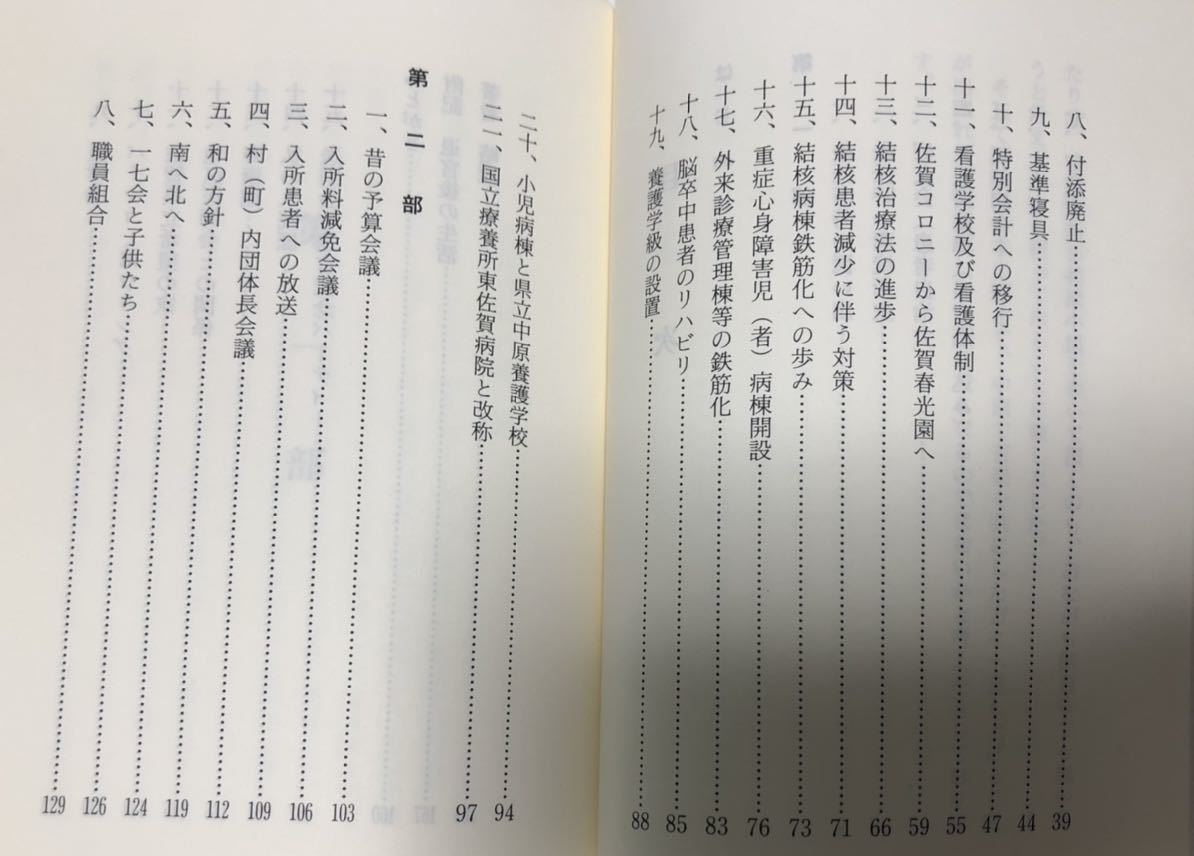 八、付添廃止……39
九、基準寝具……44
十、特別会計への移行……47
十一、看護学校及び看護体制……55
十二、佐賀コロニーから佐賀春光園へ……59
十三、結核治療法の進歩……66
十四、結核患者減少に伴う対策……71
十五、結核病棟鉄筋化への歩み……73
十六、重症心身障害児（者）病棟開設……76
十七、外来診療管理棟等の鉄筋化……83
十八、脳卒中患者のリハビリ……85
十九、養護学級の設置……88
二十、小児病棟と県立中原養護学校……94
二一、国立療養所東佐賀病院と改称……97
第二部
一、昔の予算会議……103
二、入所料減免会議……106
三、入所患者への放送……109
四、村（町）内団体長会議……112
五、和の方針……119
六、南へ北へ……124
七、一七会と子供たち……126
八、職員組合……129